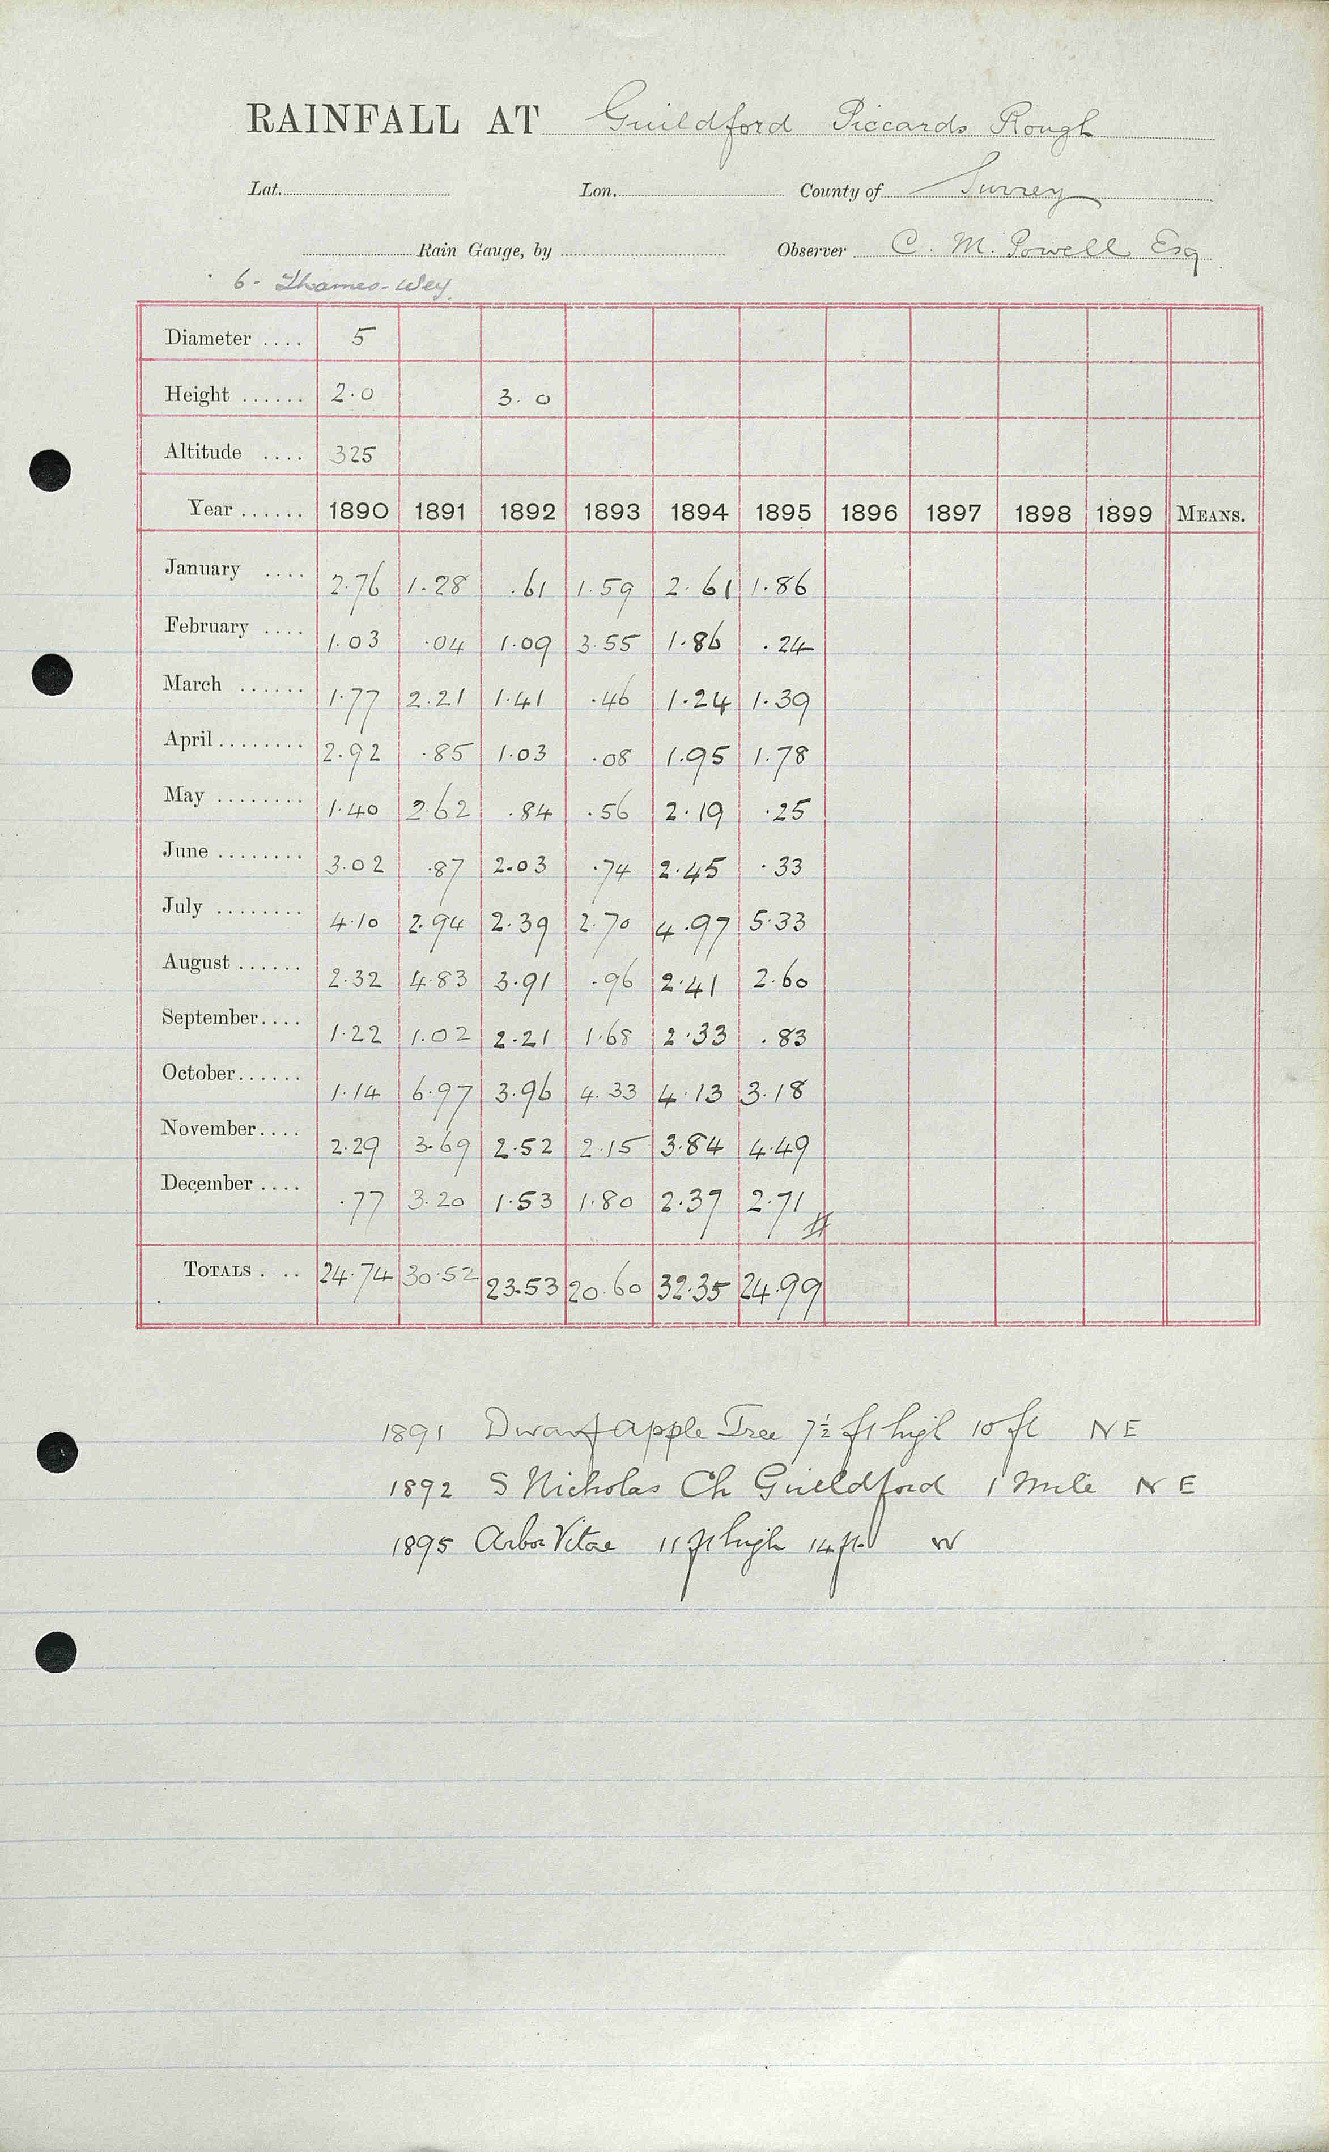 RAINFALL AT Guildford Piccards Rough
Lat. Lon. County of Surrey
Rain Gauge, by Observer C. M. Powell Esq
6 - Thames-Wey
Diameter .... 5
Height ...... 2.0 3.0
Altitude .... 325
Year ...... 1890 1891 1892 1893 1894 1895 1896 1897 1898 1899 MEANS.
January .... 2.76 1.28 .61 1.59 2.61 1.86
February .... 1.03 .04 1.09 3.55 1.86 .24
March ...... 1.77 2.21 1.41 .46 1.24 1.39
April ........ 2.92 .85 1.03 .08 1.95 1.78
May ........ 1.40 2.62 .84 .56 2.19 .25
June ........ 3.02 .87 2.03 .74 2.45 .33
July ........ 4.10 2.94 2.39 2.70 4.97 5.33
August ...... 2.32 4.83 3.91 .96 2.41 2.60
September.... 1.22 1.02 2.21 1.68 2.33 .83
October...... 1.14 6.97 3.96 4.33 4.13 3.18
November.... 2.29 3.69 2.52 2.15 3.84 4.49
December .... .77 3.20 1.53 1.80 2.37 2.71
TOTALS . .. 24.74 30.52 23.53 20.60 32.35 24.99
1891 Dwarf apple Tree 7½ ft high 10 ft NE
1892 S Nicholas Ch Guildford 1 Mile NE
1895 Arbor Vitae 11 ft high 14 ft W